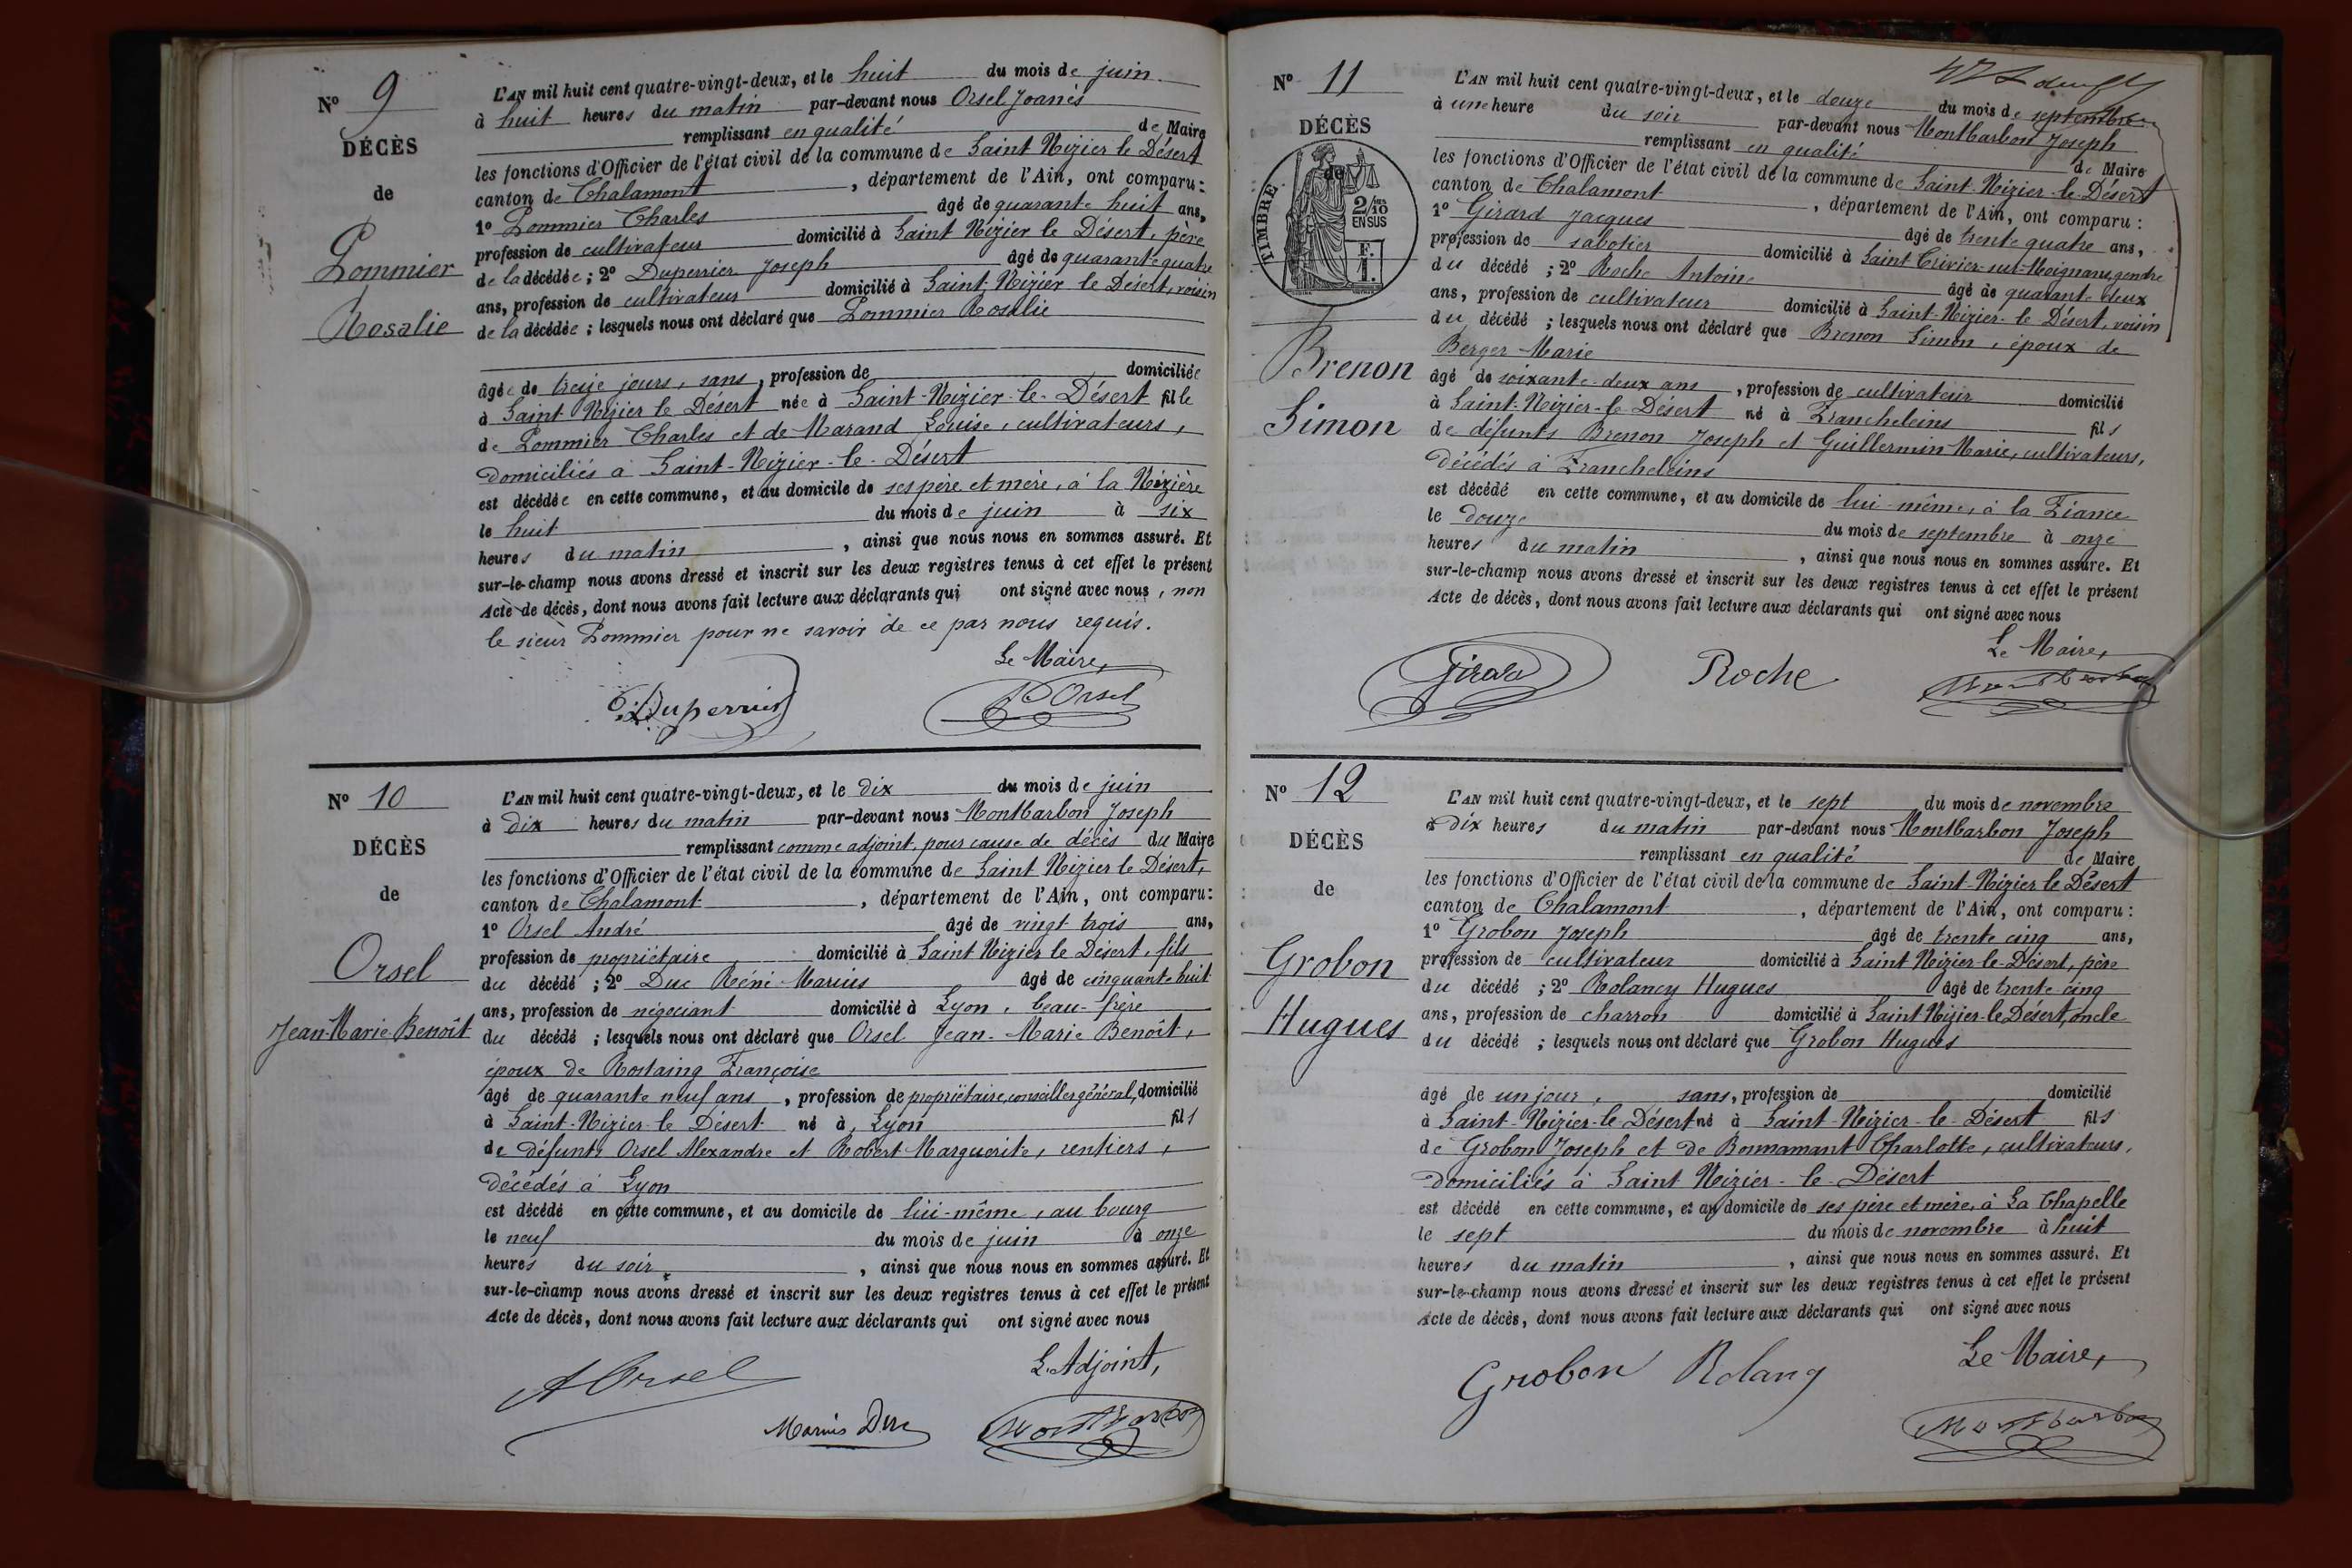 N° 9
DÉCÈS
de
Pommier
Rosalie
L'AN mil huit cent quatre-vingt-deux, et le huit du mois de juin
à huit heures du matin par-devant nous Orsel Joanès
remplissant en qualité de Maire
les fonctions d'Officier de l'état civil de la commune de Saint Nizier le Désert
canton de Chalamont, département de l'Ain, ont comparu :
1° Pommier Charles âgé de quarante huit ans,
profession de cultivateur domicilié à Saint Nizier le Désert, père
de la décédée ; 2° Duperrier Joseph âgé de quarante quatre
ans, profession de cultivateur domicilié à Saint Nizier le Désert, voisin
de la décédée ; lesquels nous ont déclaré que Pommier Rosalie
âgée de treize jours, sans, profession de domiciliée
à Saint Nizier le Désert née à Saint-Nizier-le-Désert fille
de Pommier Charles et de Marand Louise, cultivateurs,
domiciliés à Saint-Nizier-le-Désert
est décédée en cette commune, et au domicile de ses père et mère, à la Nizière
le huit du mois de juin à six
heures du matin, ainsi que nous nous en sommes assuré. Et
sur-le-champ nous avons dressé et inscrit sur les deux registres tenus à cet effet le présent
Acte de décès, dont nous avons fait lecture aux déclarants qui ont signé avec nous, non
le sieur Pommier pour ne savoir de ce par nous requis.
Le Maire,
Duperrier
Orsel
N° 10
DÉCÈS
de
Orsel
Jean-Marie-Benoît
L'AN mil huit cent quatre-vingt-deux, et le dix du mois de juin
à dix heures du matin par-devant nous Montbarbon Joseph
remplissant comme adjoint, pour cause de décès du Maire
les fonctions d'Officier de l'état civil de la commune de Saint Nizier le Désert,
canton de Chalamont, département de l'Ain, ont comparu :
1° Orsel André âgé de vingt trois ans,
profession de propriétaire domicilié à Saint Nizier le Désert, fils
du décédé ; 2° Duc Réné Marius âgé de cinquante huit
ans, profession de négociant domicilié à Lyon, beau-frère
du décédé ; lesquels nous ont déclaré que Orsel Jean-Marie Benoît,
époux de Rostaing Françoise
âgé de quarante neuf ans, profession de propriétaire, conseiller général, domicilié
à Saint-Nizier le Désert né à Lyon fils
de défunts Orsel Alexandre et Robert Marguerite, rentiers,
décédés à Lyon
est décédé en cette commune, et au domicile de lui-même, au bourg
le neuf du mois de juin à onze
heures du soir, ainsi que nous nous en sommes assuré. Et
sur-le-champ nous avons dressé et inscrit sur les deux registres tenus à cet effet le présent
Acte de décès, dont nous avons fait lecture aux déclarants qui ont signé avec nous
L'Adjoint,
A Orsel
Marius Duc
Montbarbon
N° 11
DÉCÈS
de
TIMBRE
2/10
EN SUS
F.
1.
Brenon
Simon
L'AN mil huit cent quatre-vingt-deux, et le douze du mois de septembre
à une heure du soir par-devant nous Montbarbon Joseph
remplissant en qualité de Maire
les fonctions d'Officier de l'état civil de la commune de Saint-Nizier-le-Désert
canton de Chalamont, département de l'Ain, ont comparu :
1° Girard Jacques âgé de trente quatre ans,
profession de sabotier domicilié à Saint Trivier-sur-Moignans, gendre
du décédé ; 2° Roche Antoine âgé de quarante deux
ans, profession de cultivateur domicilié à Saint-Nizier-le Désert, voisin
du décédé ; lesquels nous ont déclaré que Brenon Simon, époux de
Berger Marie
âgé de soixante-deux ans, profession de cultivateur domicilié
à Saint-Nizier-le-Désert né à Francheleins fils
de défunts Brenon Joseph et Guillermin Marie, cultivateurs,
décédés à Francheleins
est décédé en cette commune, et au domicile de lui-même, à la
le douze du mois de septembre à onze
heures du matin, ainsi que nous nous en sommes assuré. Et
sur-le-champ nous avons dressé et inscrit sur les deux registres tenus à cet effet le présent
Acte de décès, dont nous avons fait lecture aux déclarants qui ont signé avec nous
Le Maire,
Girard
Roche
Montbarbon
N° 12
DÉCÈS
de
Grobon
Hugues
L'AN mil huit cent quatre-vingt-deux, et le sept du mois de novembre
à dix heures du matin par-devant nous Montbarbon Joseph
remplissant en qualité de Maire
les fonctions d'Officier de l'état civil de la commune de Saint-Nizier le Désert
canton de Chalamont, département de l'Ain, ont comparu :
1° Grobon Joseph âgé de trente cinq ans,
profession de cultivateur domicilié à Saint Nizier-le-Désert, père
du décédé ; 2° Rolancy Hugues âgé de trente cinq
ans, profession de charron domicilié à Saint Nizier-le Désert, oncle
du décédé ; lesquels nous ont déclaré que Grobon Hugues
âgé de un jour, sans, profession de domicilié
à Saint-Nizier-le-Désert né à Saint-Nizier-le-Désert fils
de Grobon Joseph et de Bonnamant Charlotte, cultivateurs,
domiciliés à Saint Nizier-le-Désert
est décédé en cette commune, et au domicile de ses père et mère, à La Chapelle
le sept du mois de novembre à huit
heures du matin, ainsi que nous nous en sommes assuré. Et
sur-le-champ nous avons dressé et inscrit sur les deux registres tenus à cet effet le présent
Acte de décès, dont nous avons fait lecture aux déclarants qui ont signé avec nous
Le Maire,
Grobon
Rolancy
Montbarbon